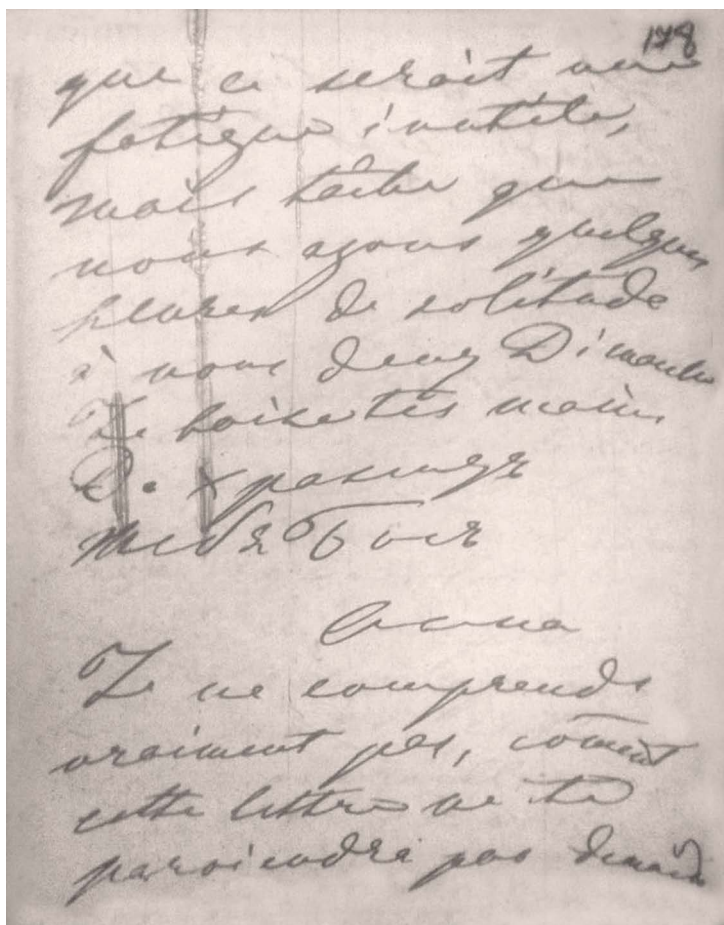 178
que ce serait une
fatigue inutile,
mais tâche que
nous ayons quelques
heures de solitude
à nous deux Dimanche
Je baise tes mains
хранитъ
тебя Богъ
Anna
Je ne comprends
vraiment pas, coment
cette lettre ne te
parviendra pas demain